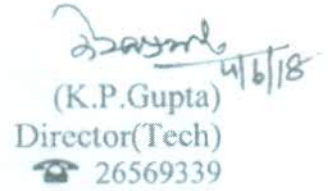 4/6/18
(K.P.Gupta)
Director(Tech)
☎ 26569339